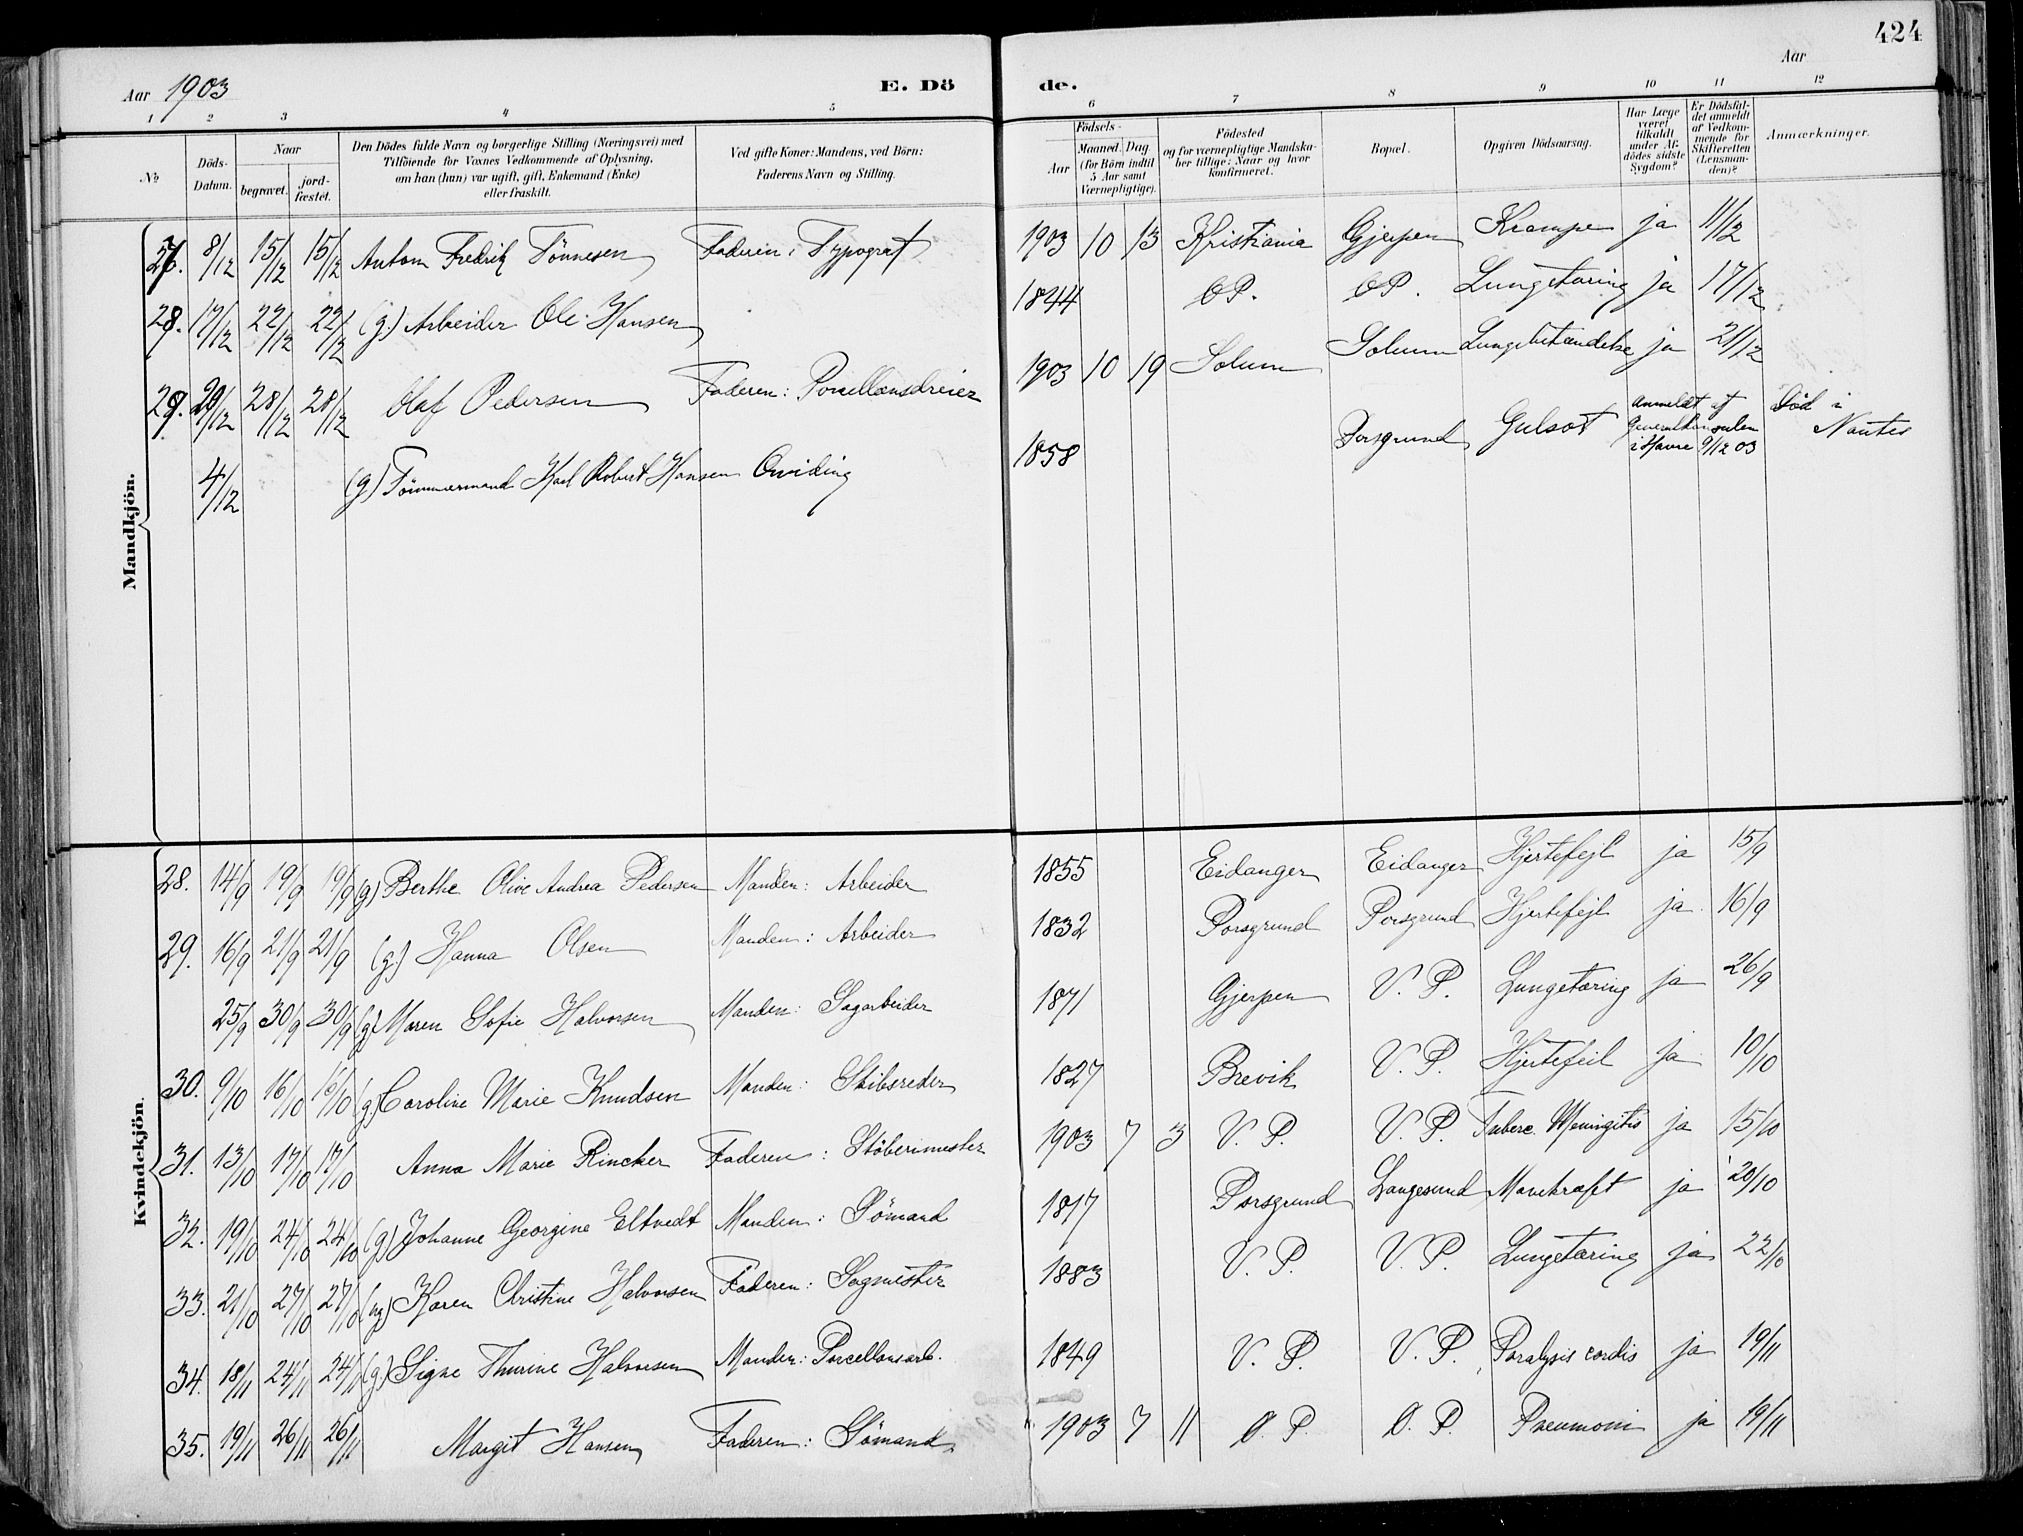 424
Aar 1903
E. Dö
de.
Aar
1 2 3 4 5 6 7 8 9 10 11 12
№
Döds-
Datum.
Naar
begravet.
jord-
fæstet.
Den Dödes fulde Navn og borgerlige Stilling (Næringsvei) med
Tilföiende for Voxnes Vedkommende af Oplysning,
om han (hun) var ugift, gift, Enkemand (Enke)
eller fraskilt.
Ved gifte Koner: Mandens, ved Börn:
Faderens Navn og Stilling.
Födsels-
Aar
Maaned. Dag
(for Börn indtil
5 Aar samt
Værnepligtige).
Födested
og for værnepligtige Mandska-
ber tillige: Naar og hvor
konfirmeret.
Bopæl.
Opgiven Dödsaarsag.
Har Læge
været
tilkaldt
under Af-
dödes sidste
Sygdom?
Er Dödsfal-
det anmeldt
af Vedkom-
mende for
Skifteretten
(Lensman-
den)?
Anmærkninger.
Mandkjön.
27. 8/12 15/12 15/12 Anton Fredrik Tönnesen Faderen: Typograf 1903 10 13 Kristiania Gjerpen Krampe ja 11/12
28. 17/12 22/12 22/12 (g.) Arbeider Ole Hansen 1844 ØP. ØP. Lungetæring ja 17/12
29. 20/12 28/12 28/12 Olaf Pedersen Faderen: Porcellænsdreier 1903 10 19 Solum Solum Lungebetændelse ja 21/12
4/12 (g) Tömmermand Karl Robert Hansen Qviding 1858 Porsgrund Gulsot Anmeldt af Generalkonsulen i Havre 9/12 03 Död i Nantes
Kvindekjön.
28. 14/9 19/9 19/9 (g) Berthe Olive Andrea Pedersen Manden: Arbeider 1855 Eidanger Eidanger Hjertefejl ja 15/9
29. 16/9 21/9 21/9 (g.) Hanna Olsen Manden: Arbeider 1832 Porsgrund Porsgrund Hjertefejl ja 16/9
25/9 30/9 30/9 (g) Maren Sofie Halvorsen Manden: Sagarbeider 1871 Gjerpen V. P. Lungetæring ja 26/9
30. 9/10 16/10 16/10 (g) Caroline Marie Knudsen Manden: Skibsreder 1827 Brevik V. P. Hjertefeil ja 10/10
31. 13/10 17/10 17/10 Anna Marie Rincker Faderen: Stöberimester 1903 7 3 V. P. V. P. Tuberc. Meningitis ja 15/10
32. 19/10 24/10 24/10 (g) Johanne Georgine Eltvedt Manden: Sömand 1817 Porsgrund Langesund Mavekræft ja 20/10
33. 21/10 27/10 27/10 (ug) Karen Christine Halvorsen Faderen: Sagmester 1883 V. P. V. P. Lungetæring ja 22/10
34. 18/11 24/11 24/11 (g.) Signe Thurine Halvorsen Manden: Porcellænsarb. 1849 V. P. V. P. Paralysis cordis ja 19/11
35. 19/11 26/11 26/11 Margit Hansen Faderen: Sömand 1903 7 11 Ø. P. Ø. P. Pneumoni ja 19/11